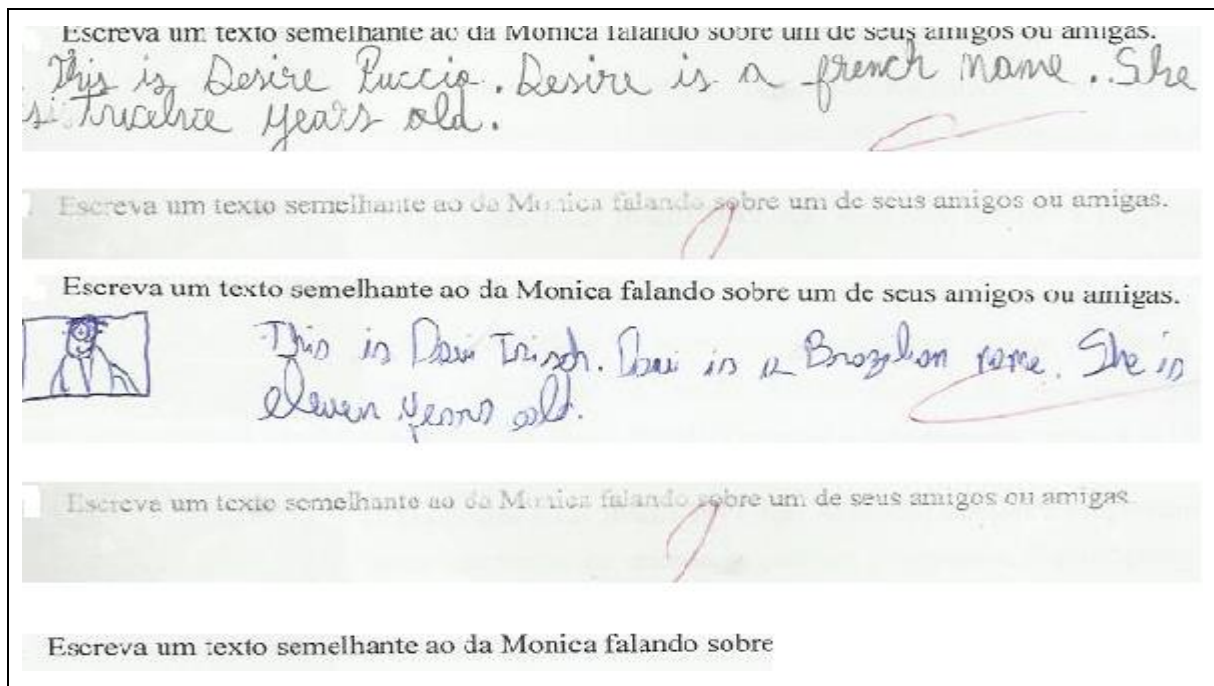 Escreva um texto semelhante ao da Monica falando sobre um de seus amigos ou amigas.
This is Desire Puccio. Desire is a french name. She
si twelve years old.
Escreva um texto semelhante ao da Monica falando sobre um de seus amigos ou amigas.
Escreva um texto semelhante ao da Monica falando sobre um de seus amigos ou amigas.
This is Davi Trisch. Davi is a Brazilian name. She is
eleven years old.
Escreva um texto semelhante ao da Monica falando sobre um de seus amigos ou amigas.
Escreva um texto semelhante ao da Monica falando sobre